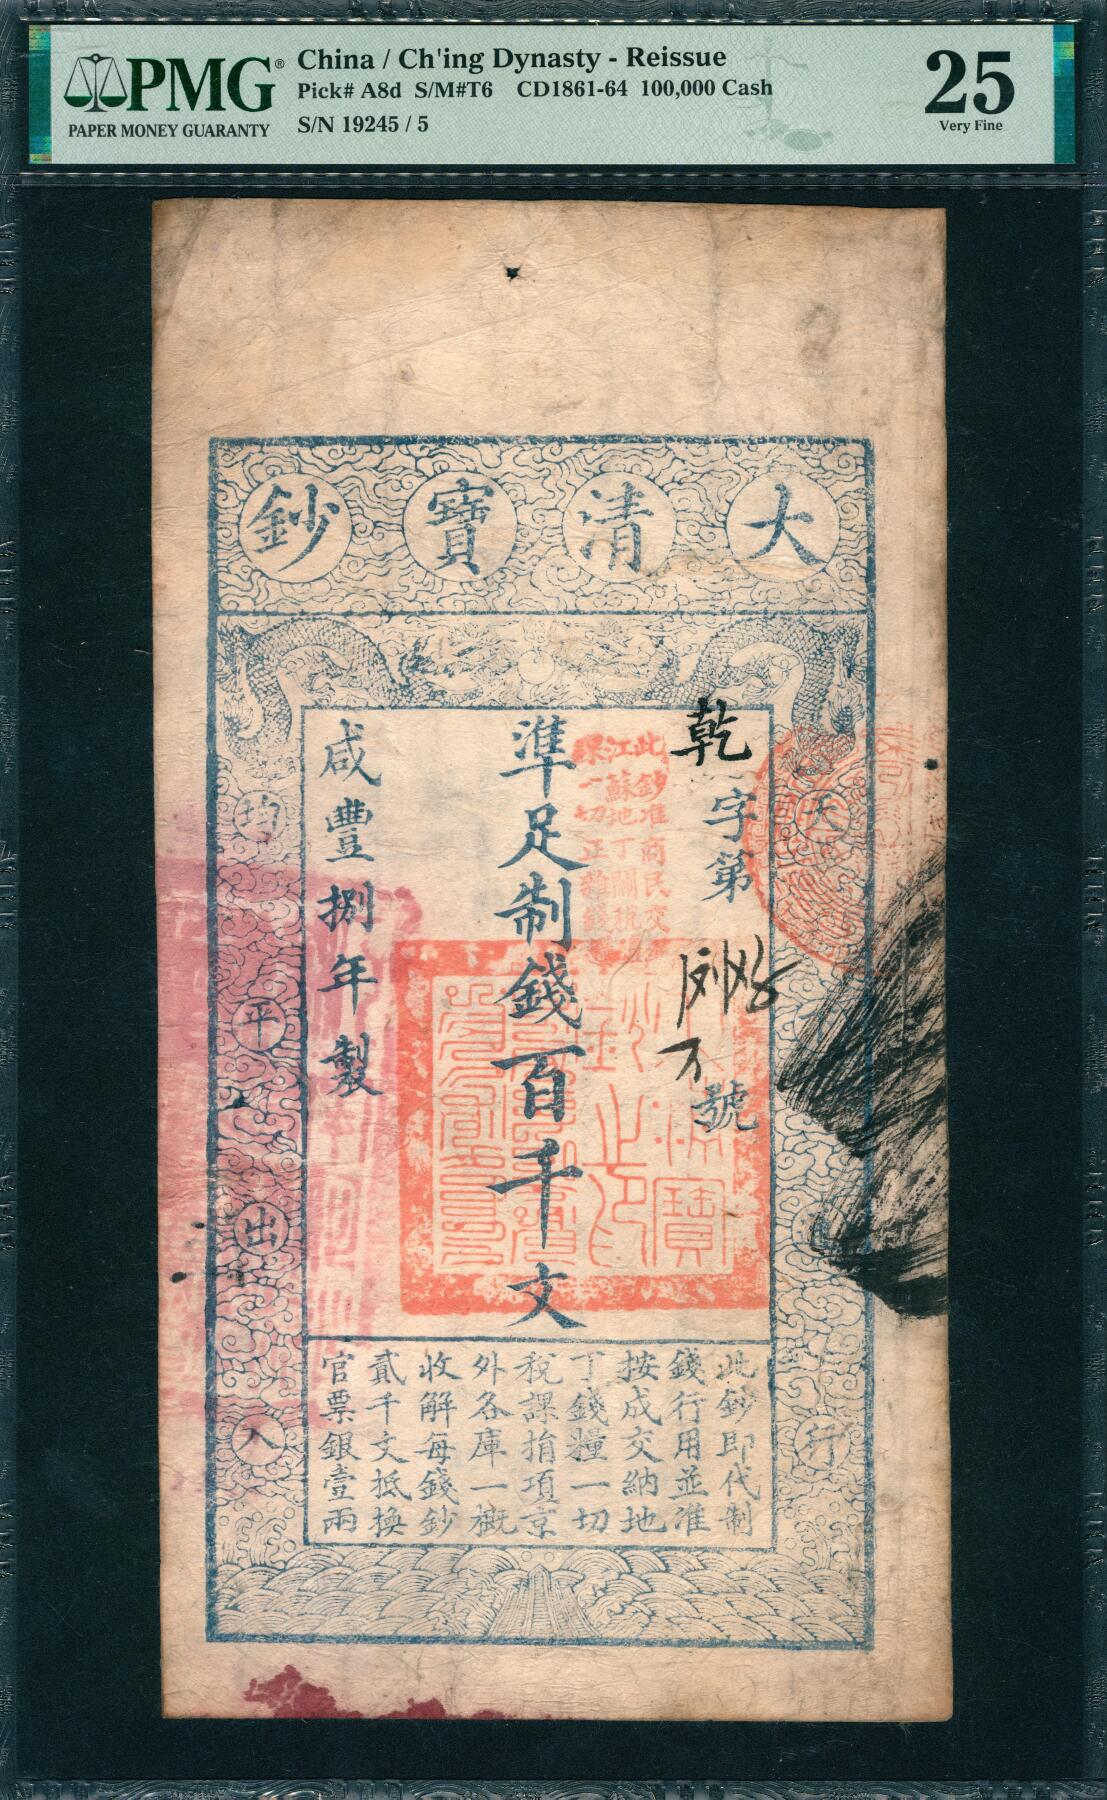 PMG®
PAPER MONEY GUARANTY
China / Ch'ing Dynasty - Reissue
Pick# A8d S/M#T6 CD1861-64 100,000 Cash
S/N 19245 / 5
25
Very Fine
大清寶鈔
天
行
均平出入
乾字第
號
此鈔准商民交
江蘇地丁關稅
課一切正雜
準足制錢百千文
咸豐捌年製
此鈔即代制
錢行用並准
按成交納地
丁錢糧一切
稅課捐項京
外各庫一概
收解每錢鈔
貳千文抵換
官票銀壹兩